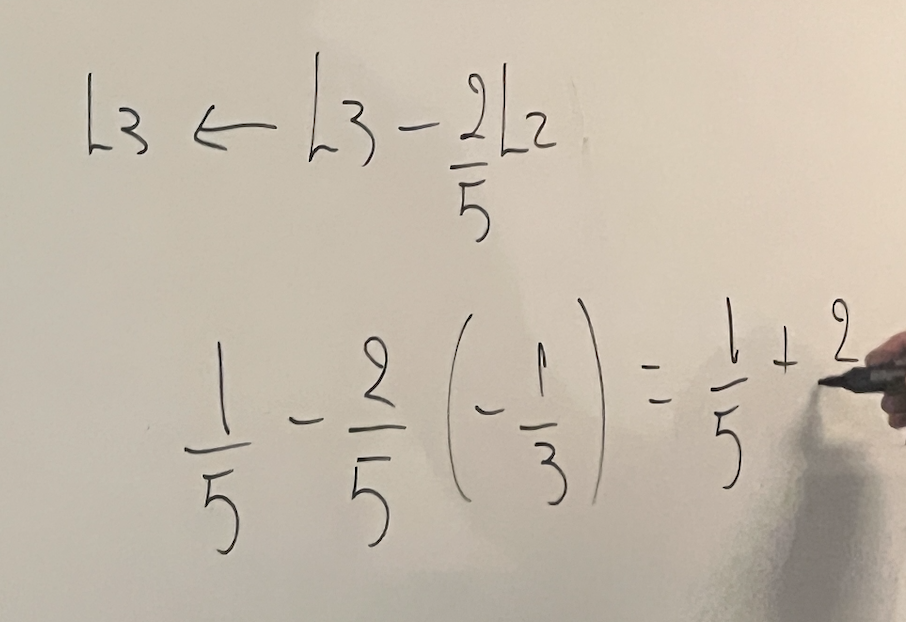 L3 ← L3 - 2/5 L2
1/5 - 2/5 (-1/3) = 1/5 + 2